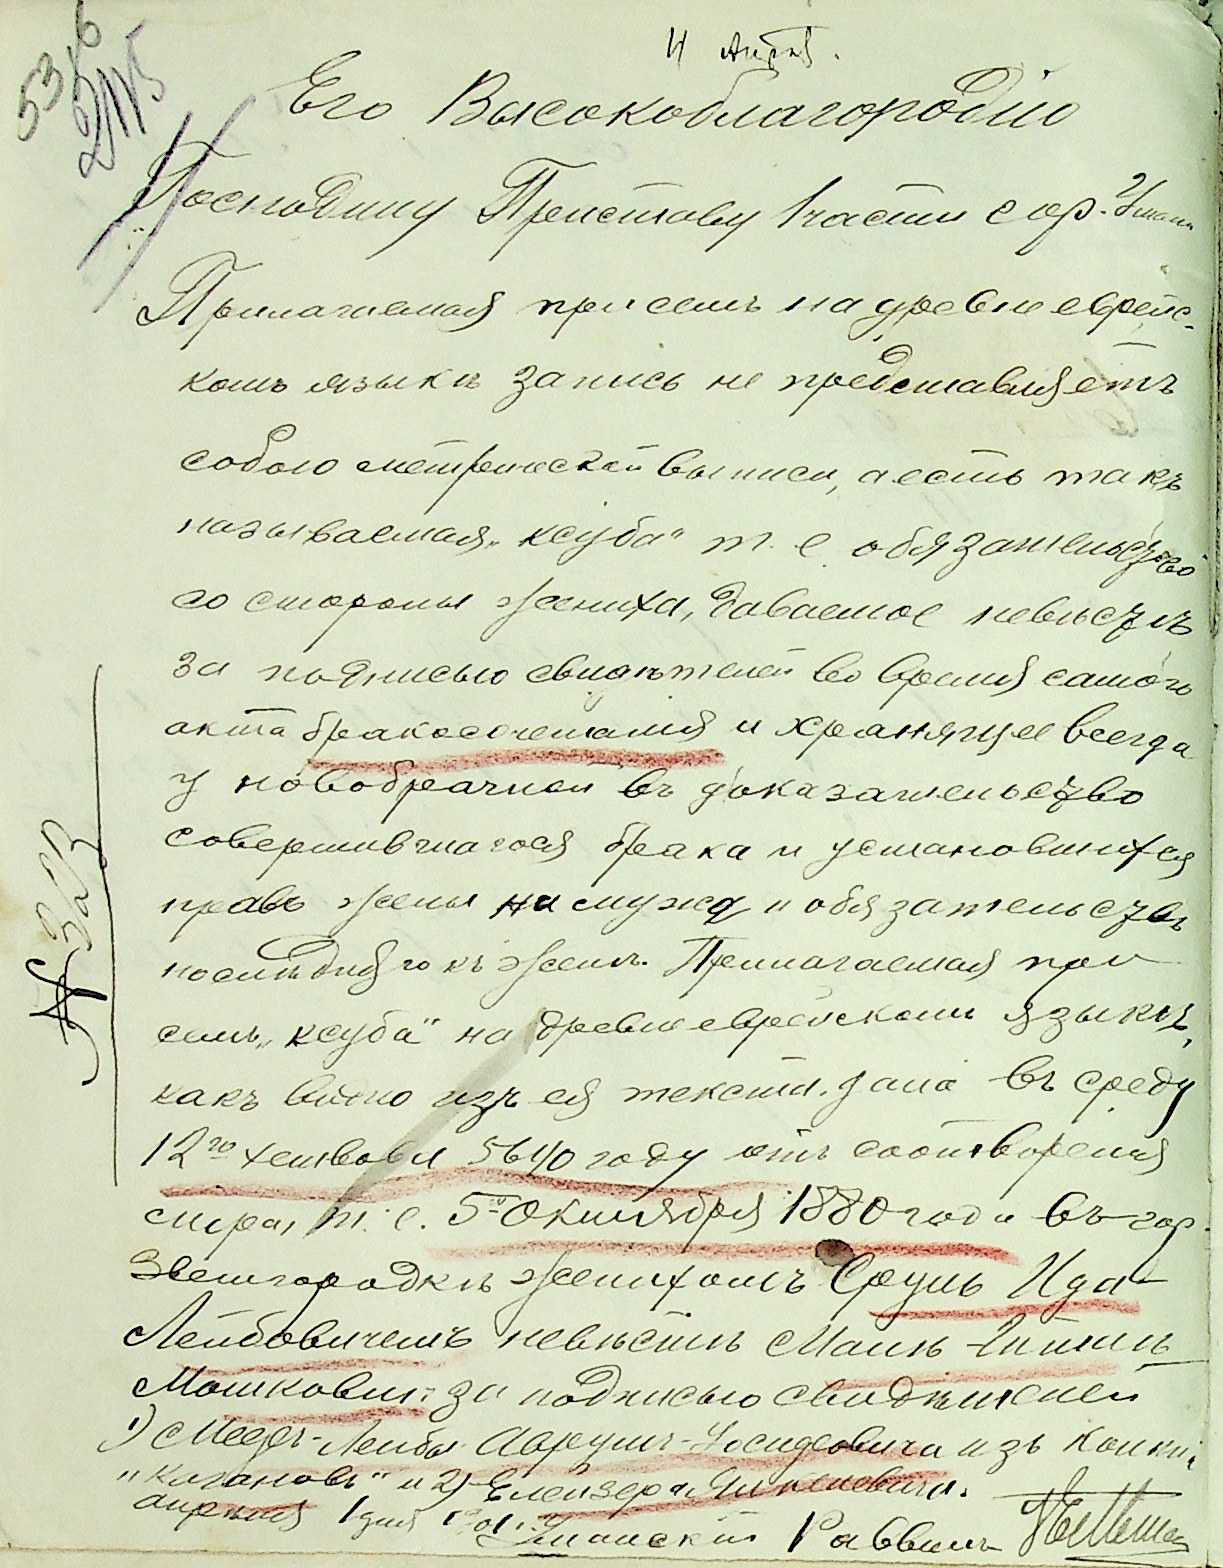 53
2115
11 Апрѣ.
Его Высокоблагородію
Господину Приставу 1 части гор. Умани
Прилагаемая при семъ на древне еврейс-
комъ языкѣ запись не представляетъ
собою метрической выписи, а есть такъ
называемая „ксуба" т. е. обязательство
со стороны жениха, даваемое невѣстѣ
за подписью свидѣтелей во время самого
акта бракосочетанія и хранящее всегда
у новобрачной въ доказательство
совершившагося брака и установившихся
правъ жены на мужа и обязательствъ
послѣдняго къ женѣ. Прилагаемая при
семъ „ксуба" на древне еврейскомъ языкѣ,
какъ видно изъ ея текста, дана въ среду
12го хешвана 5640 году отъ сотворенія
міра, т. е. 5го Октября 1880 года въ гор.
Звенгородкѣ женихомъ Сруль Ида-
Лейбовичемъ невѣстѣ Маліѣ
Мошковнѣ за подписью свидѣтелей
1) Мееръ-Лейбы Аврумъ-Іосифовича изъ
„Кагановъ" и 2) Елейзера Янкелевича.
апрѣля 1 дня 1901. Уманскій Раввинъ
№ 343